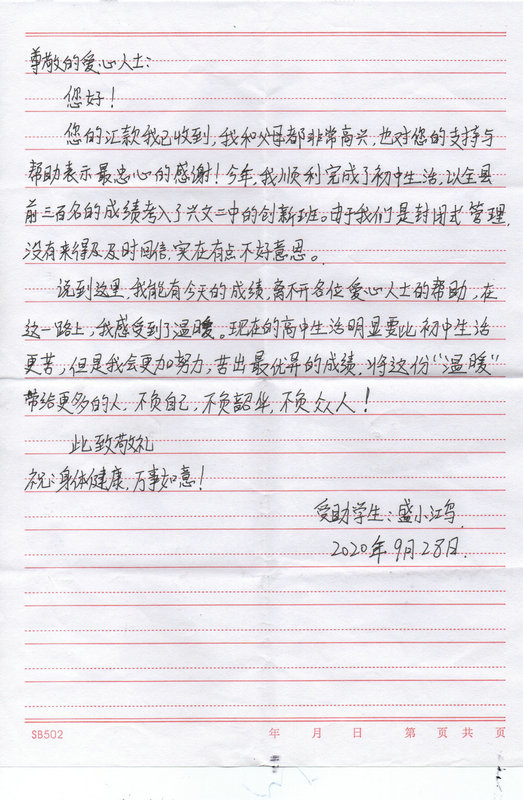 尊敬的爱心人士：
您好！
您的汇款我已收到，我和父母都非常高兴，也对您的支持与
帮助表示最忠心的感谢！今年，我顺利完成了初中生活，以全县
前三百名的成绩考入了兴文二中的创新班。由于我们是封闭式管理，
没有来得及及时回信，实在有点不好意思。
说到这里，我能有今天的成绩，离不开各位爱心人士的帮助，在
这一路上，我感受到了温暖。现在的高中生活明显要比初中生活
更苦，但是我会更加努力，苦出最优异的成绩，将这份“温暖”
带给更多的人，不负自己，不负韶华，不负众人！
此致敬礼
祝：身体健康，万事如意！
受助学生：盛小江鸟
2020年9月28日.
SB502 年 月 日 第 页 共 页